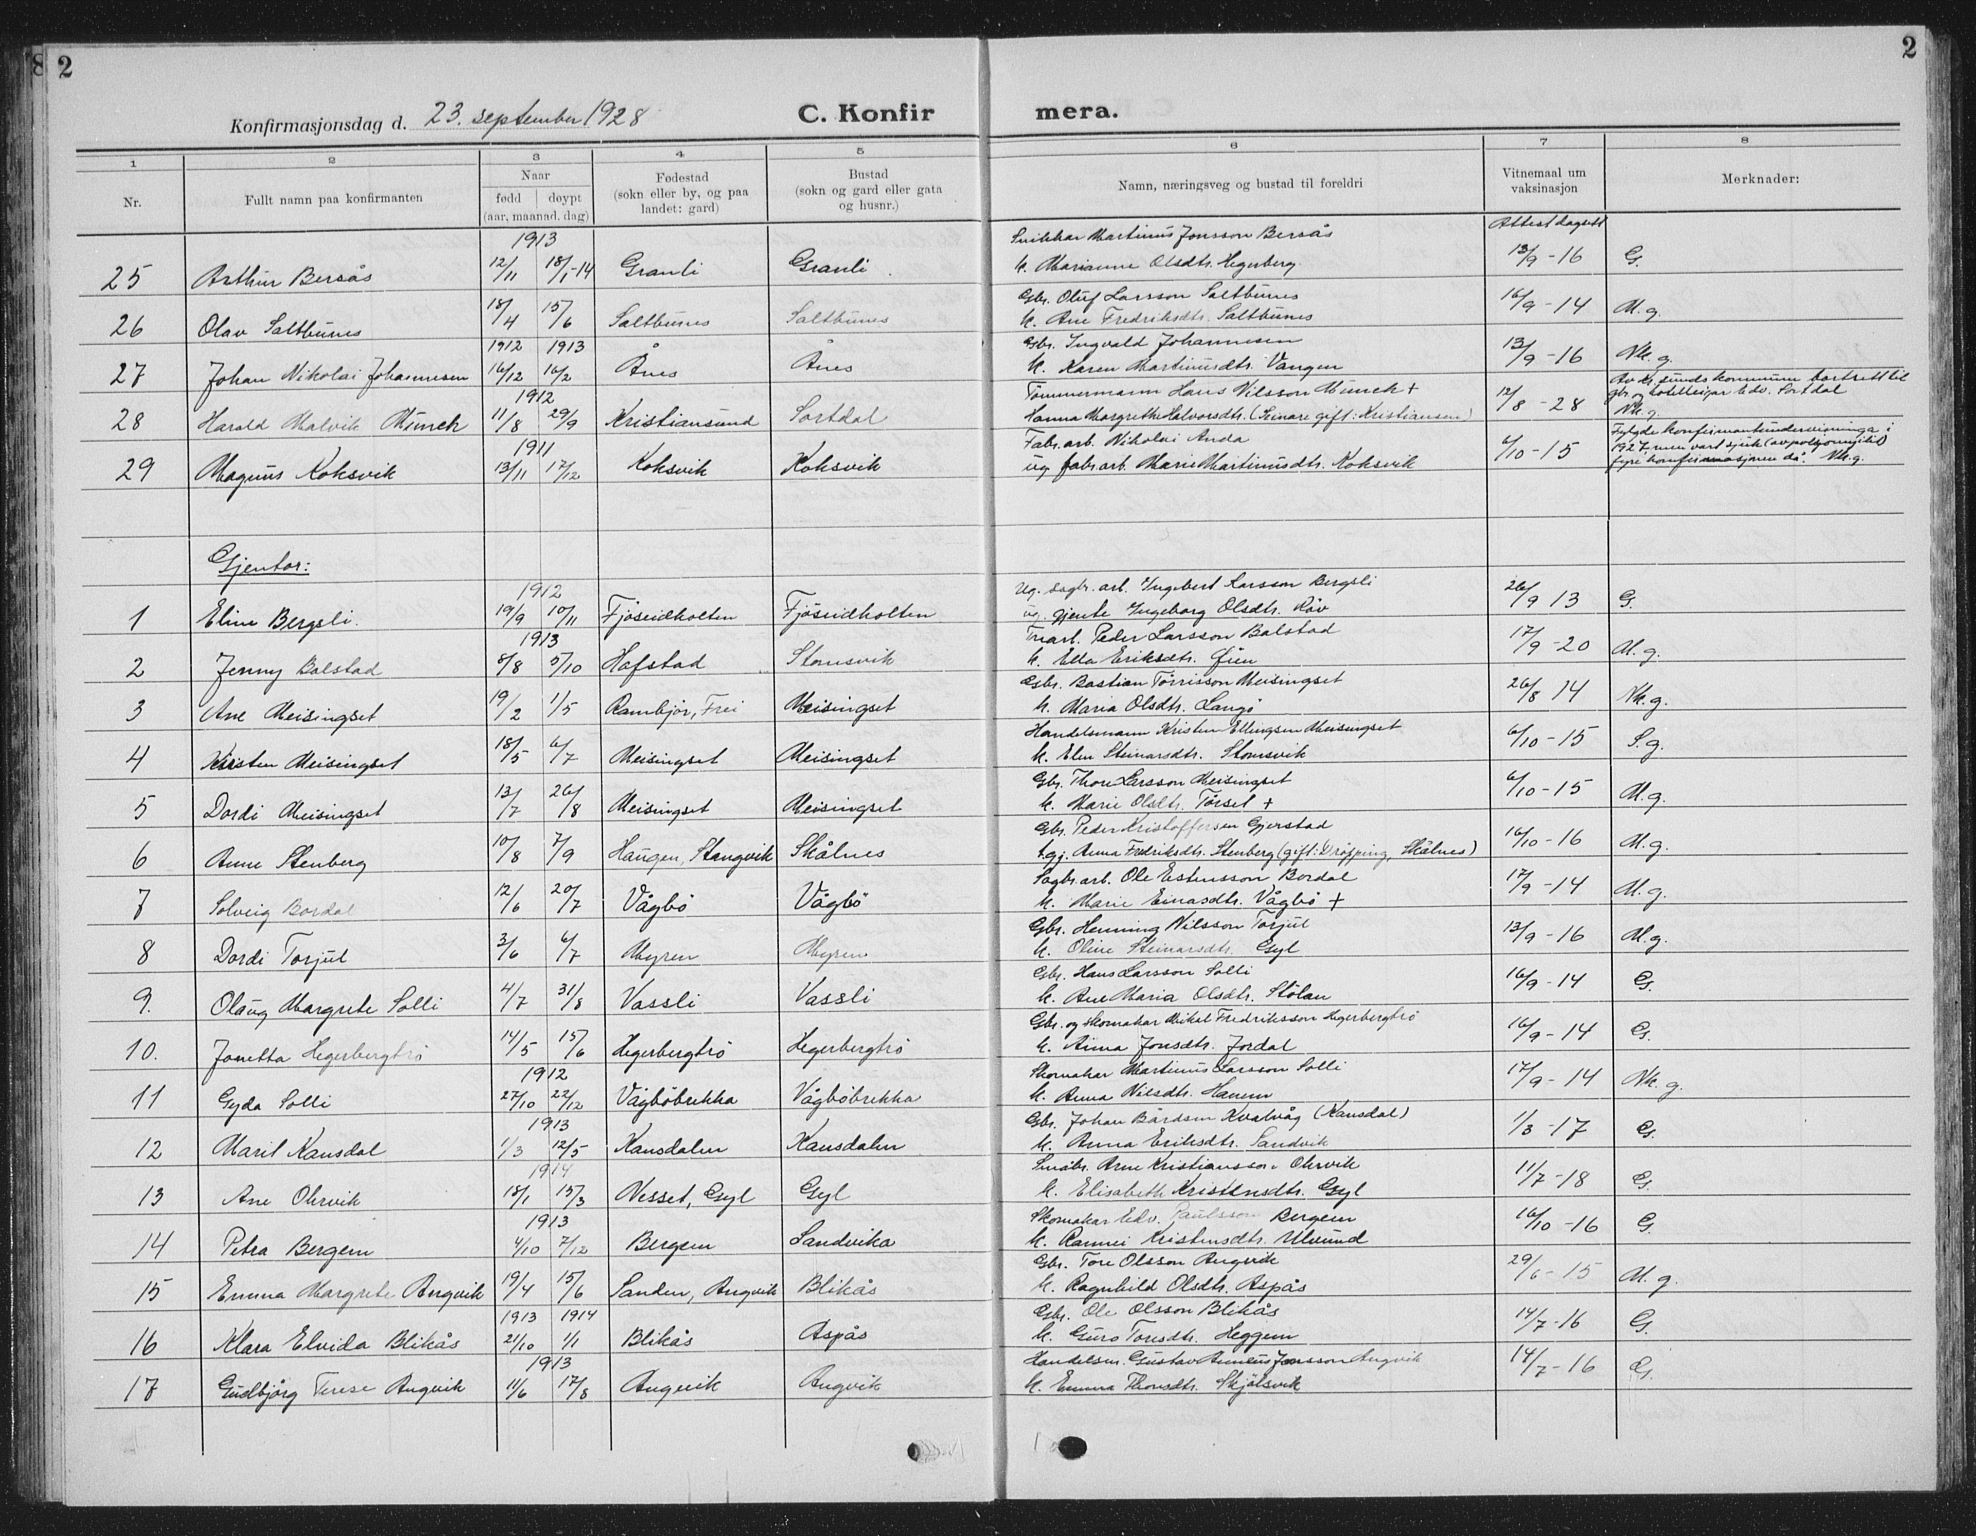 2
2
Konfirmasjonsdag d. 23. september 1928
C. Konfir
mera.
1 2 3 4 5 6 7 8
Nr.
Fullt namn paa konfirmanten
Naar
fødd døypt
(aar, maanad, dag)
Fødestad
(sokn eller by, og paa
landet: gard)
Bustad
(sokn og gard eller gata
og husnr.)
Namn, næringsveg og bustad til foreldri
Vitnemaal um
vaksinasjon
Merknader:
1913 Martinus Jonsson Bersås Attest dagsett
25 Arthur Bersås 12/11 18/1-14 Granli Granli k. Marianne Olsdtr. Hegerberg 13/9-16 G.
Gbr. Oluf Larsson Saltbunes
26 Olav Saltbunes 18/4 15/6 Saltbunes Saltbunes k. Ane Fredriksdtr. Saltbunes 16/9-14 M.g.
1912 1913 Gbr. Ingvald Johannesen
27 Johan Nikolai Johannesen 16/12 16/2 Ånes Ånes k. Karen Martinusdtr. Vangen 13/9-16 Nk.g.
1912 Tømmermann Hans Nilsson Munch + Av Kr.sunds kommune bortsett til
28 Harald Malvik Munch 11/8 29/9 Kristiansund Sortdal Hanna Margrethe Halvorsdtr. (Seinare gift: Kristiansen) 12/8-28 gbr. og Edv. Sortdal
Nk.g.
1911 Fabr.arb. Nikolai Anda Fylgde konfirmantundervisninga i
29 Magnus Koksvik 13/11 17/12 Koksvik Koksvik ug fabr.arb. Marie Martinusdtr. Koksvik 6/10-15 1927, men vart sjuk
fyre konfirmasjonen då. Nk.g.
Gjentor:
1912 Ug. sagbr. arb. Ingebert Larsson Bergsli
1 Eline Bergsli. 19/9 10/11 Fjøseidholten Fjøseidholten ug. gjente Ingeborg Olsdtr. Røv 26/9 13 G.
1913 Peder Larsson Bolstad
2 Jenny Bolstad 8/8 5/10 Hofstad Stomsvik k. Ella Eriksdtr. Øien 17/9-20 M.g.
Gbr. Bastian Tørrisson Meisingset
3 Ane Meisingset 19/2 1/5 Rambjør, Frei Meisingset k. Maria Olsdtr. Langø 26/8 14 Nk.g.
Handelsmann Kristen Ellingsen Meisingset
4 Kristen Meisingset 18/5 6/7 Meisingset Meisingset k. Elen Steinarsdtr. Stomsvik 6/10-15 S.g.
Gbr. Thore Larsson Meisingset
5 Dordi Meisingset 13/7 26/8 Meisingset Meisingset k. Marie Olsdtr. Tørset + 6/10-15 M.g.
Gbr. Peder Kristoffersen Gjerstad
6 Anne Stenberg 10/8 7/9 Haugen, Stangvik Skålnes t.gj. Anna Fredriksdtr. Stenberg (gift: Drøpping, Skålnes) 16/10-16 M.g.
Sagbr.arb. Ole Estensson Bordal
7 Solveig Bordal 12/6 20/7 Vågbø Vågbø k. Marie Einarsdtr. Vågbø + 17/9-14 M.g.
Gbr. Henning Nilsson Torjul
8 Dordi Torjul 3/6 6/7 Myren Myren k. Oline Steinarsdtr. Gyl 13/9-16 M.g.
Gbr. Hans Larsson Solli
9. Olaug Margrete Solli 4/7 31/8 Vassli Vassli k. Ane Maria Olsdtr. Stølan 16/9-14 G.
Gbr. og skomakar Mikal Fredriksson Hegerbergtrø
10. Jonetta Hegerbergtrø 14/5 15/6 Hegerbergtrø Hegerbergtrø k. Anna Jonsdtr. Jordal 16/9-14 G.
1912 Skomakar Martinus Larsson Solli
11 Gyda Solli 27/10 22/12 Vågbøbrekka Vågbøbrekka k. Anna Nilsdtr. Hanem 17/9-14 Nk.g.
1913 Gbr. Johan Bårdsen Kvalvåg (Kansdal)
12 Marit Kansdal 1/3 12/5 Kansdalen Kansdalen k. Anna Eriksdtr. Sandvik 1/3-17 G.
1914 Småbr. Arne Kristiansson Ohrvik
13 Ane Ohrvik 18/1 15/3 Nesset, Gyl Gyl k. Elisabeth Kristensdtr. Gyl 11/7-18 G.
1913 Skomakar Edv. Paulsson Bergem
14 Petra Bergem 4/10 7/12 Bergem Sandvika k. Rannei Kristensdtr. Ulvund 16/10-16 G.
Gbr. Tore Olsson Angvik
15 Emma Margrete Angvik 19/4 15/6 Sanden, Angvik Blikås k. Ragnhild Olsdtr. Aspås 29/6-15 M.g.
1913 1914 Gbr. Ole Olsson Blikås
16 Klara Elvida Blikås 21/10 1/1 Blikås Aspås k. Guro Toresdtr. Heggem 14/7-16 G.
1913 Handelsm. Gustav Jonsson Angvik
17 Gudbjørg Terese Angvik 11/6 17/8 Angvik Angvik k. Emma Thoresdtr. Skjølsvik 14/7-16 G.